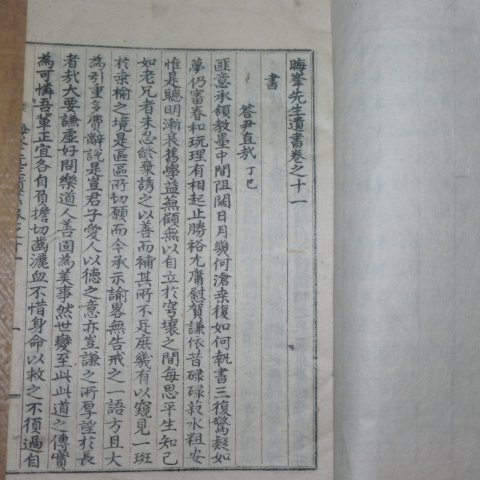 晦峯先生遺書卷之十一
書
答尹直哉 丁巳
匪意承領教墨中間阻闊日月幾何滄桑復如何執書三復驚疑如
夢仍審春和玩理有相起止勝裕尤庸慰賀謙依昔碌碌菽水粗安
惟是聰明漸衰舊學益蕪顧無以自立於穹壤之間每思平生知己
如老兄者未忍終棄謗之以善而補其所不足庶幾有以窺見一斑
於桑榆之境是區區所切願而今承示諭畧無告戒之一語方且大
為引重多費辭說是豈君子愛人以德之意亦豈謙之所厚望於長
者哉大要謙虛好問樂道人善固為美事然世變至此此道之傳實
為可憐吾輩正宜各自負擔切齒灑血不惜身命以救之不須過自